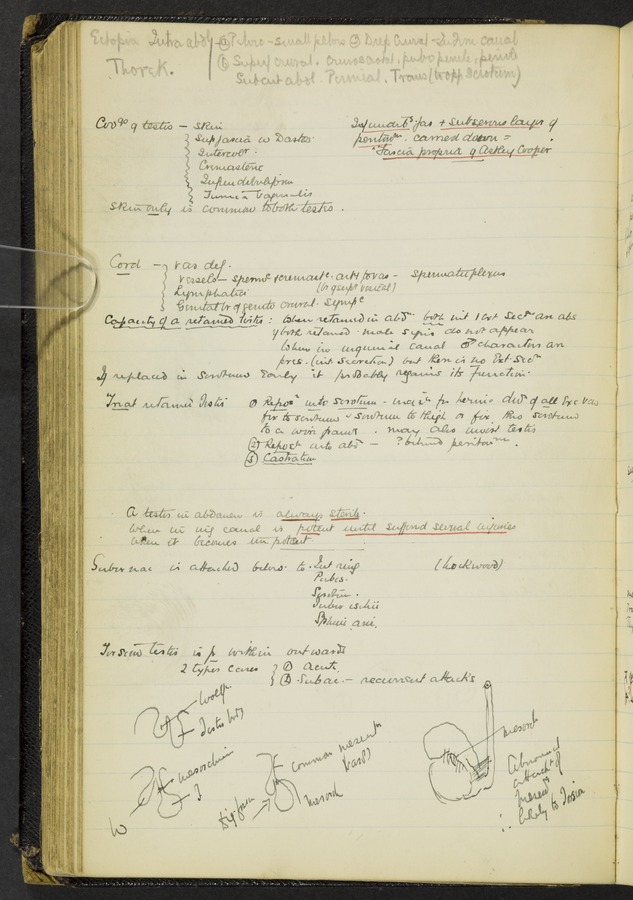 Ectopia Intra abdl Pelvic - small pelvis Deep Crural - canal
Thorek. Superf crural. pubopenile, penile
Subcut abdl Perineal. Trans (to opp Scrotum)
Covgs of testis - Skin
Superf fascia w Dartos
Intercol.
Cremasteric
Infundibuliform
Tunica Vaginalis
Skin only is common to both testis.
Infundibs fas + subserous layer of
peritm. carried down =
Fascia propria of Astley Cooper
Cord - vas def.
Vessels - sperm cremastc arts to vas - spermatic plexus
Lymphatics
Genital br of genito crural. Sympc
Capacity of a retained testis: When retained in abdn both int & ext Secn are abs
if both retained. male signs do not appear
When in inguinal canal ♂ characters are
pres. (int secretion) but there is no Ext Secn
If replaced in Scrotum Early it probably regains its function.
Treat retained Testis ① Reposn into scrotum - for hernia divn of all exc vas
fix to scrotum scrotum to thigh or fix this scrotum
to a wire frame. may also invert testis
② Reposn into abdn - ? behind peritonm.
③ Castration
A testis in abdomen is always sterile.
When in ing canal is potent until suffered several injuries
when it becomes impotent
Gubernac is attached below to. Int ring (Lockwood)
Pubes.
Scrotm.
Tuber ischii
Sphinc ani.
Torsion testis is fr within outwards
2 types cases ① Acute.
② Subac. - recurrent attacks
Wolff
Testis
mesorchium
T
W
common mesentm
(vasc)
mesorch
mesorch
Abnormal
attacht of
mesent
∴ likely to Torsion